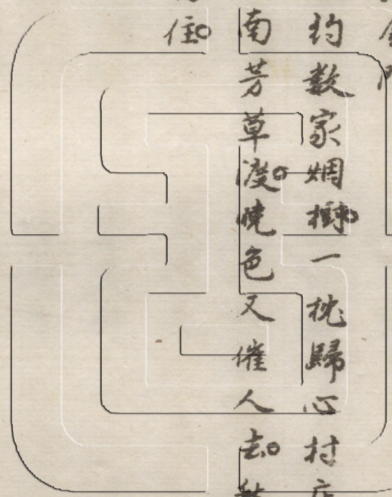 約數家烟樹。一枕歸心村
南芳草渡。曉色又催人去。
住。